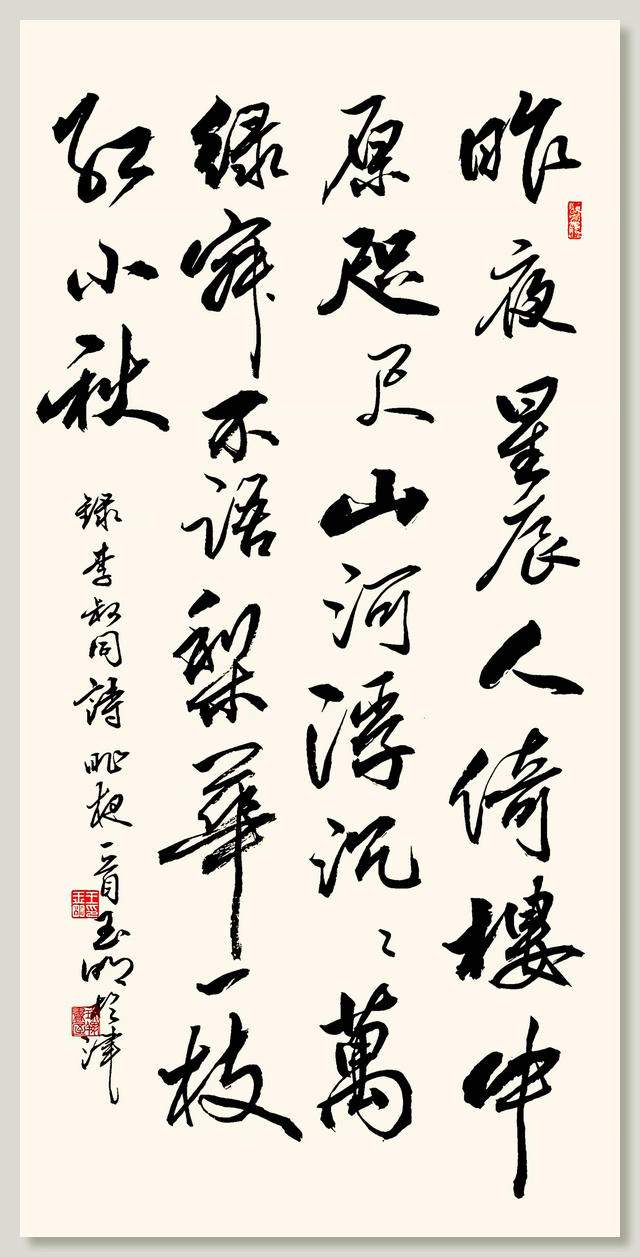 昨夜星辰人倚樓中
原咫尺山河浮沉〻萬
绿寂不語梨華一枝
红小秋
録李叔同詩昨夜一首玉明於津